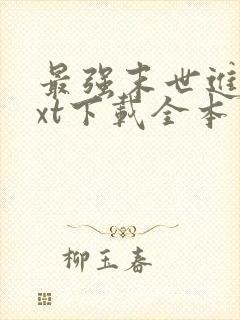 最强末世进
xt下载全本
柳玉春